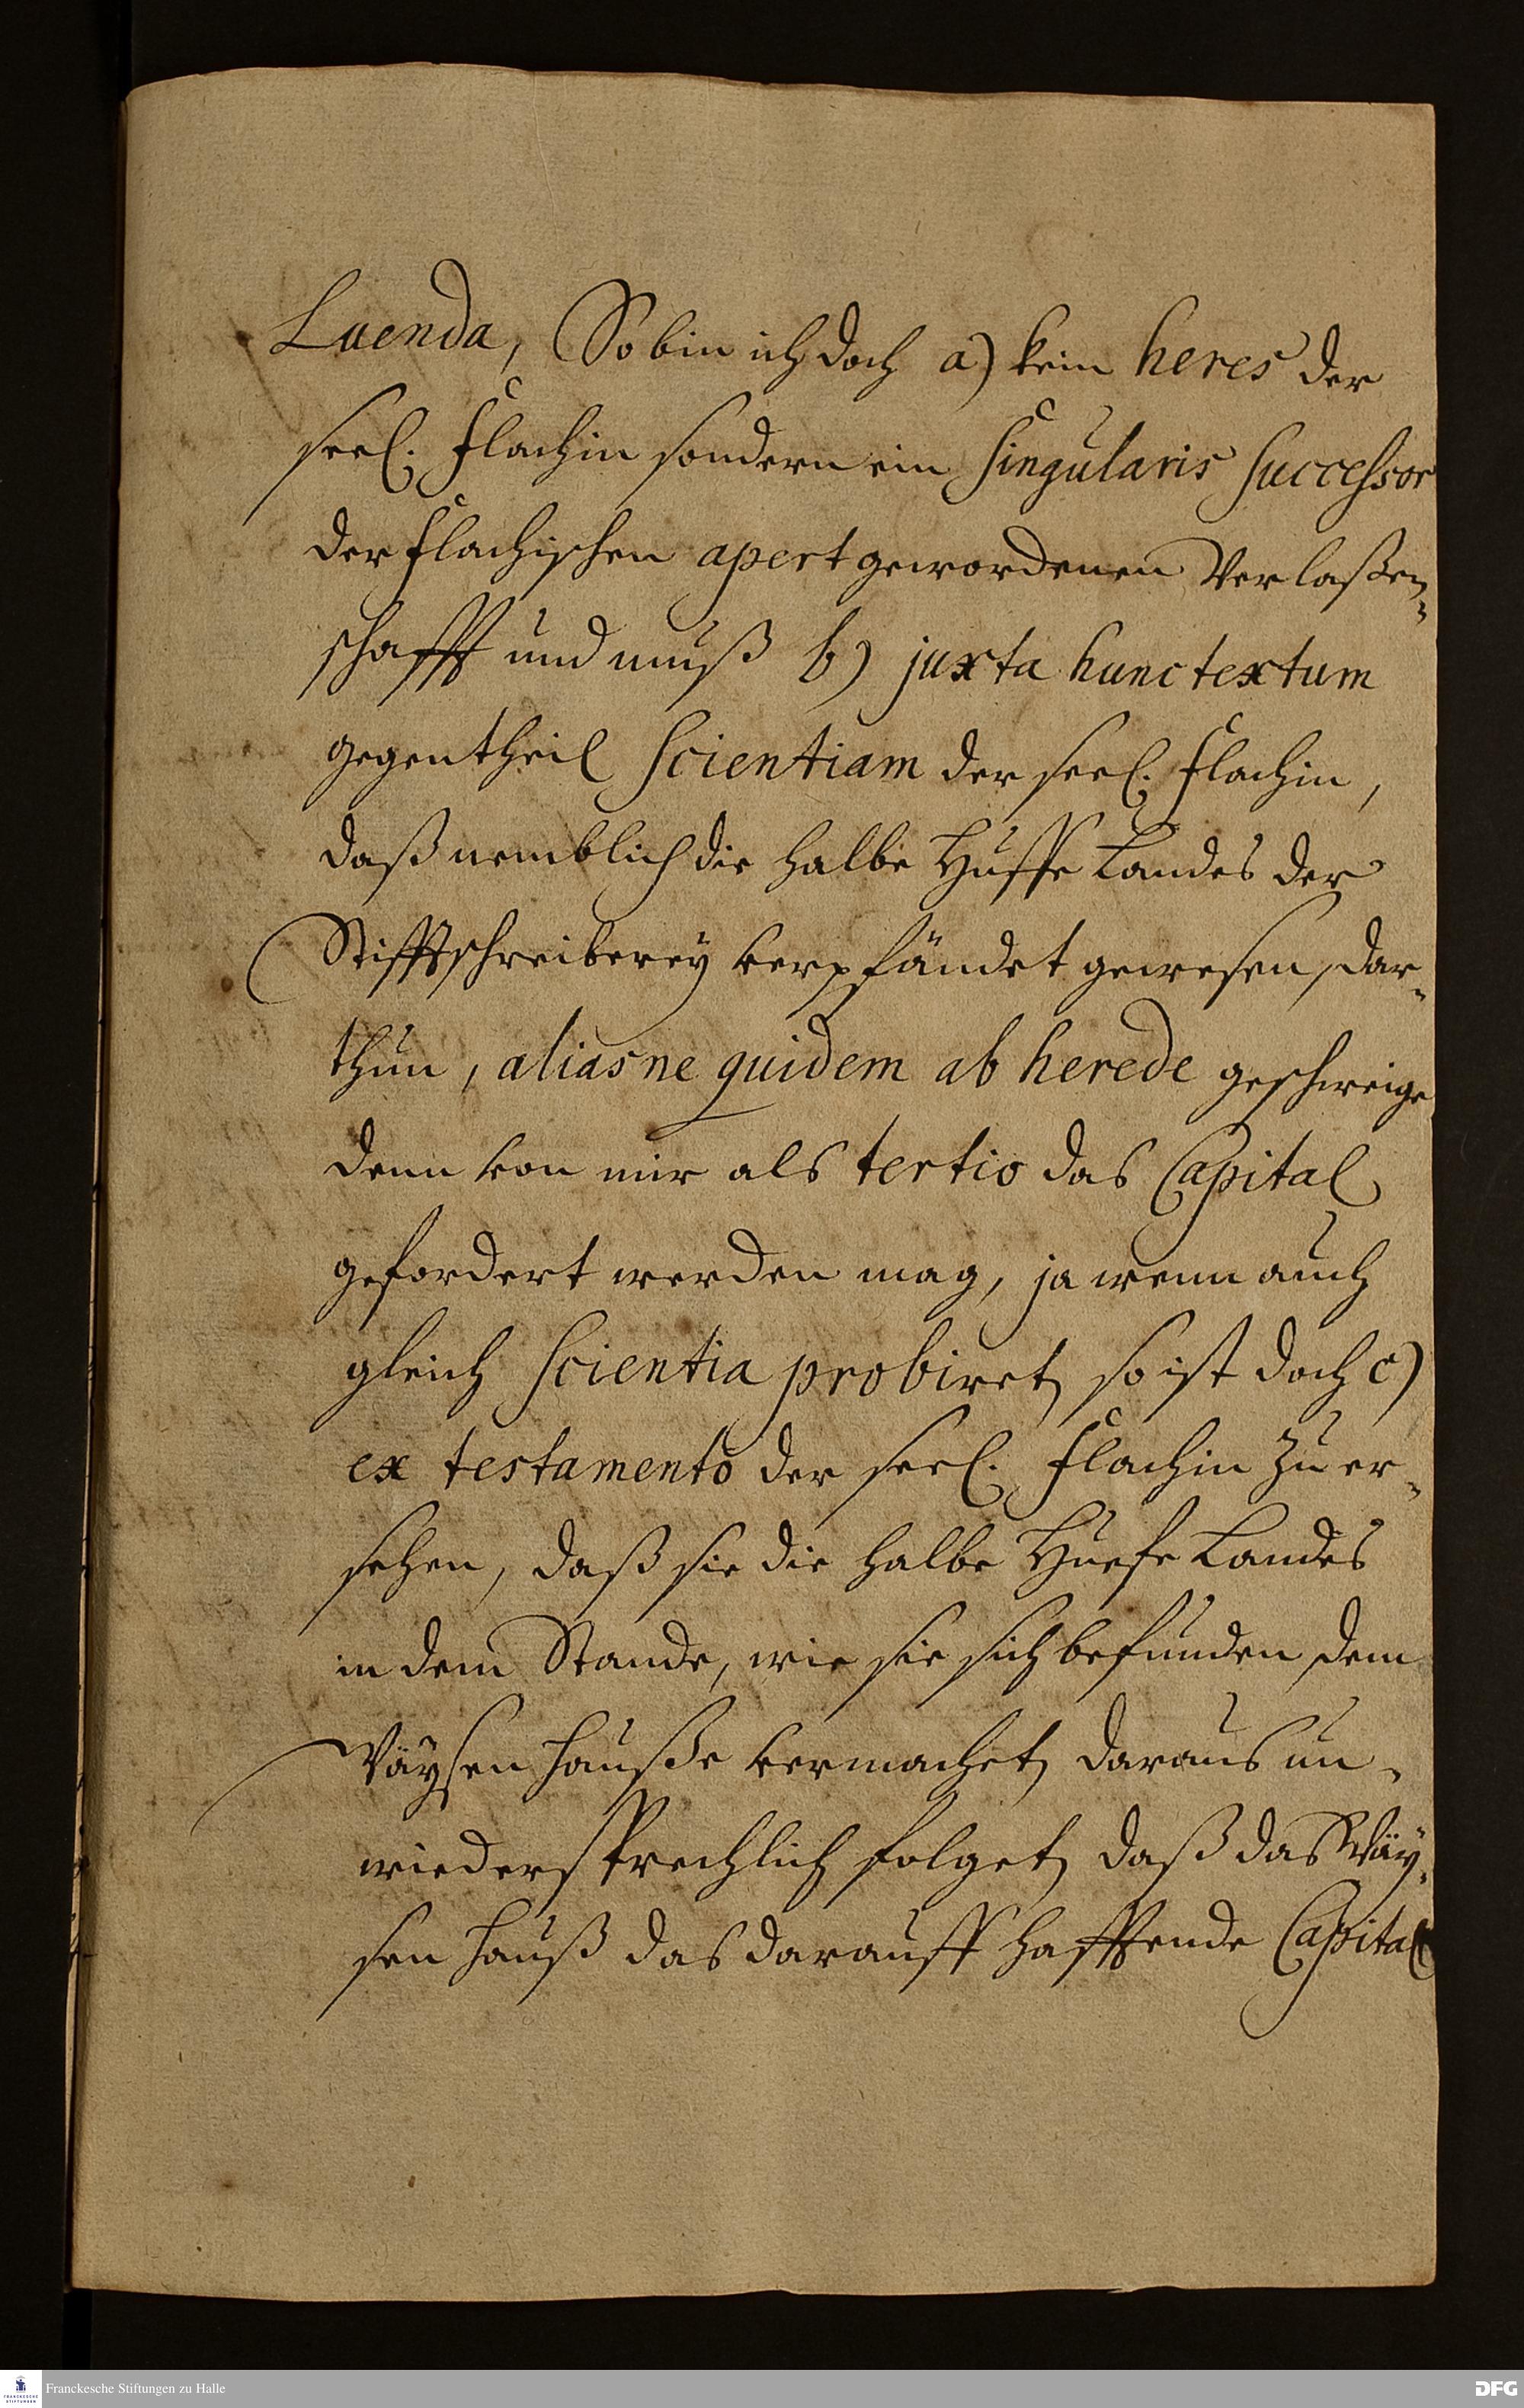 Luenda, So bin ich doch a) kein heres der
seel. Flachin sondern ein singularis successor
der Flachischen apert gewordenen Verlaßen-
schafft und muß b) juxta hunc textum
gegentheil scientiam der seel. Flachin,
daß nemblich die halbe Huffe Landes der
Stifftschreiberey verpfändet gewesen, dar-
thun, alias ne quidem ab herede geschweige
denn von mir als tertio das Capital
gefordert werden mag, ja wenn auch
gleich scientia probiret, so ist doch c)
ex testamento der seel. Flachin zu er-
sehen, daß sie die halbe Huefe Landes
in dem Stande, wie sie sich befunden dem
Wäysen Hauße vermachet, daraus un-
wiedersprechlich folget, daß das Wäy-
sen Hauß das darauff hafftende Capital
Franckesche Stiftungen zu Halle
DFG